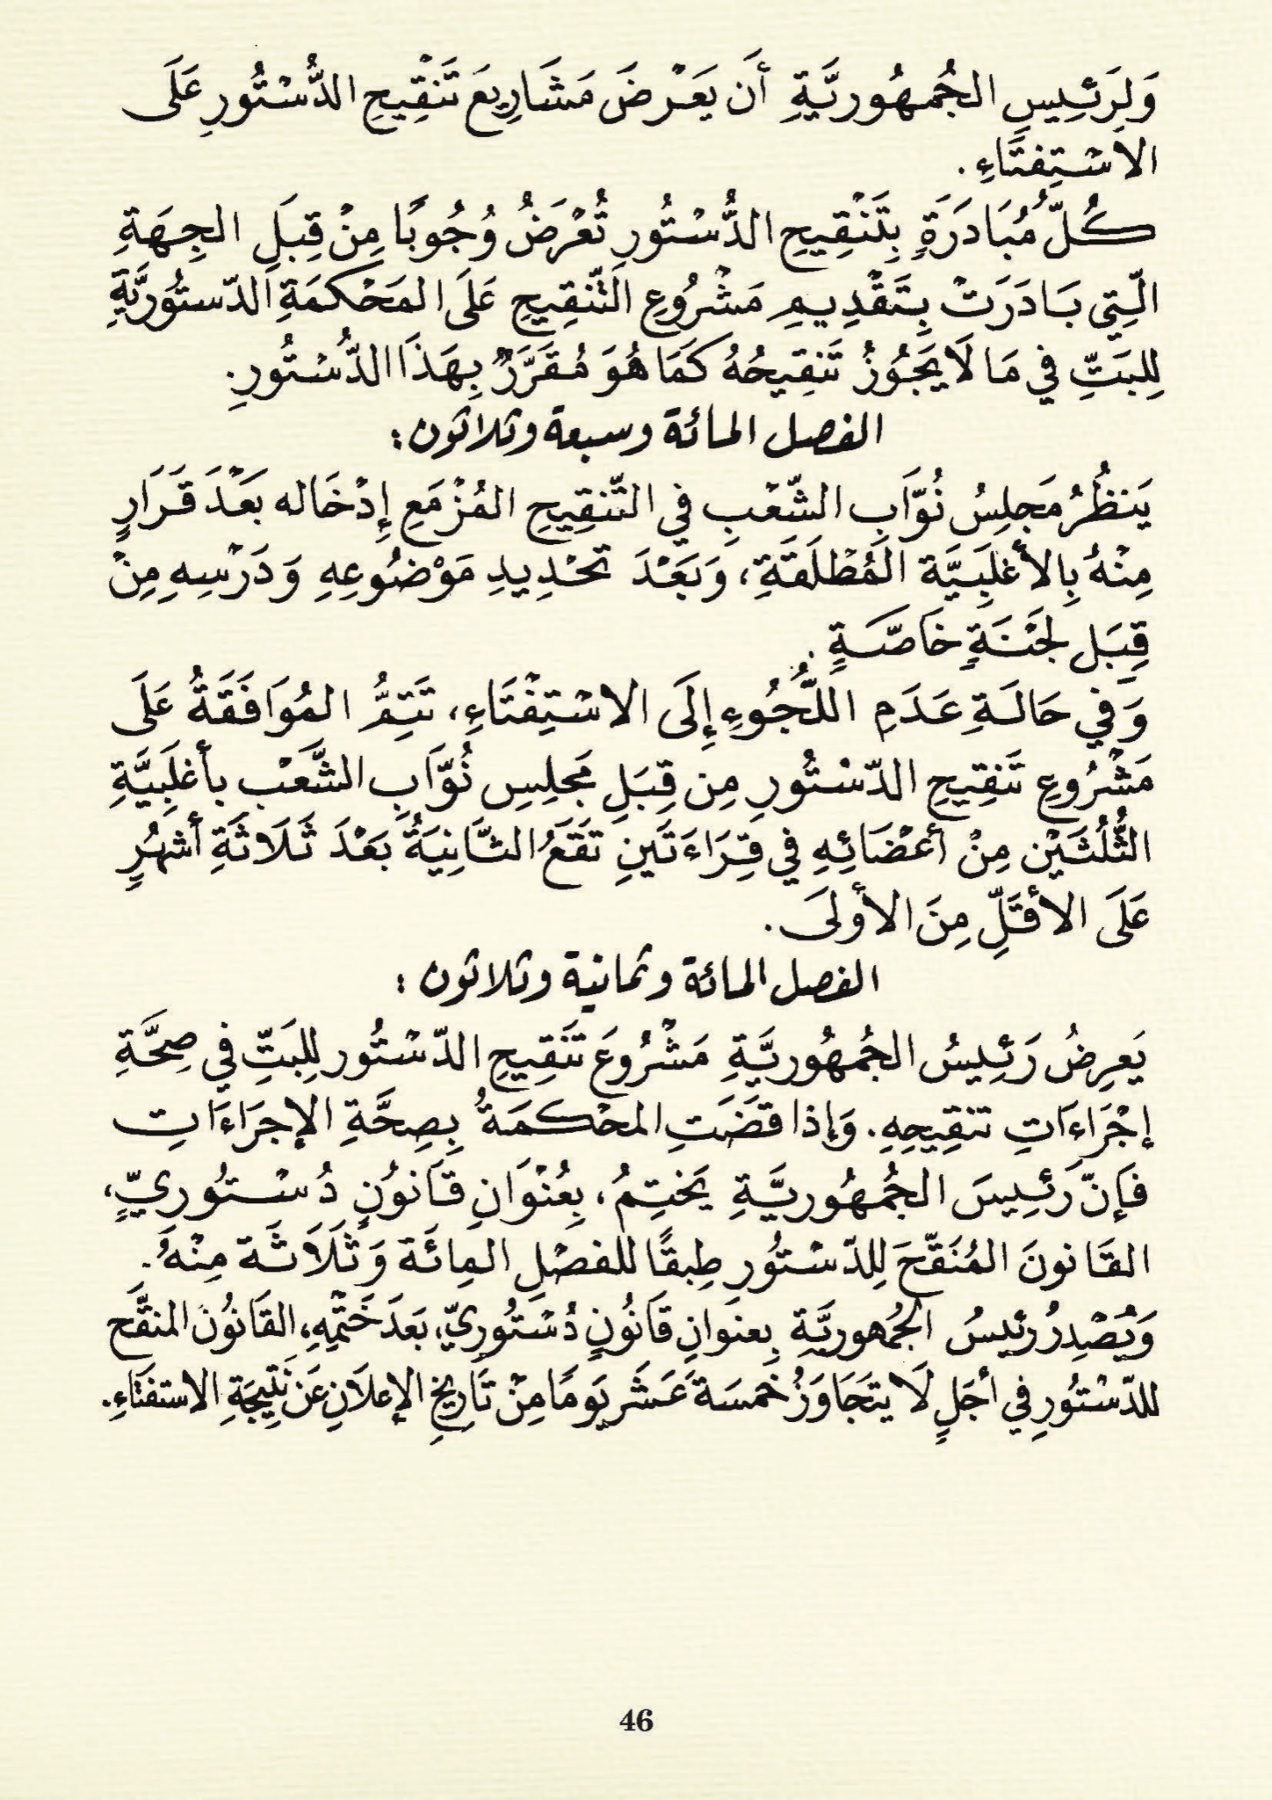 وَلِرَئِيسِ الجُمهُوريَّةِ أَن يَعْرضَ مَشَارِيعَ تَنْقِيحِ الدُّسْتُورِ عَلَى
الاسْتِفتَاءِ.
كُلّ مُبَادَرَةٍ بِتَنْقِيحِ الدُّسْتُورِ تُعْرَضُ وُجُوبًا مِنْ قِبَلِ الجِهَةِ
الّتِي بَادَرَتْ بِتَقْدِيمِ مَشْرُوعِ التّنقِيحِ عَلَى المَحْكمَةِ الدّستُوريَّةِ
لِلبَتِّ في مَا لَا يَجُوزُ تَنقِيحُهُ كَمَا هُوَ مُقَرَّرٌ بِهَذَا الدُّسْتُورِ.
الفصل المائة وسبعة وثلاثون:
يَنظُرُ مَجلِسُ نُوَّابِ الشّعْبِ في التّنقِيحِ المُزْمَعِ إِدْخَاله بَعْدَ قَرَارٍ
مِنْهُ بِالأغلَبِيَّة المُطْلَقَةِ، وَبَعْدَ تحْدِيدِ مَوْضُوعِهِ وَدَرْسِهِ مِنْ
قِبَل لَجْنَةٍ خَاصَّةٍ.
وَفي حَالَةِ عَدَمِ اللُّجُوءِ إِلَى الاسْتِفْتَاءِ، تَتِمُّ المُوَافَقَةُ عَلَى
مَشْرُوعِ تَنقِيحِ الدّسْتُورِ مِن قِبَلِ مَجلِسِ نُوَّابِ الشَّعْب بأغلَبِيَّةِ
الثُّلُثَيْن مِنْ أعْضَائِهِ في قِرَاءَتَينِ تَقَعُ الثَّانِيَةُ بَعْدَ ثَلَاثَةِ أشهُرٍ
عَلَى الأقَلِّ مِنَ الأولَى.
الفصل المائة وثمانية وثلاثون:
يَعرِضُ رَئِيسُ الجُمهُوريَّةِ مَشْرُوعَ تَنْقِيحِ الدّسْتُور لِلبَتِّ في صِحَّةِ
إجْرَاءَاتِ تنقِيحِهِ. وَإذا قَضَتِ المحْكمَةُ بِصِحَّةِ الإجرَاءَاتِ
فَإنّ رَئِيسَ الجُمهُوريَّةِ يَختِمُ، بِعُنْوَانِ قَانُونٍ دُسْتُوريٍّ،
القَانونَ المُنَقّحَ لِلدّسْتُورِ طِبقًا للفصْلِ المِائَة وَثَلَاثَة مِنْهُ.
وَيُصْدِرُ رئيسُ الجُمهوريَّةِ بِعنوَانِ قَانُونٍ دُسْتُوريٍّ، بَعدَ خَتْمِهِ، القَانُونَ المنقَّح
للدّسْتُورِ في أجَلٍ لَا يتَجَاوَزُ خَمسَةَ عَشَر يَومًا مِنْ تَاريخِ الإعلَانِ عَن نَتِيجَةِ الاستفتَاءِ.
46